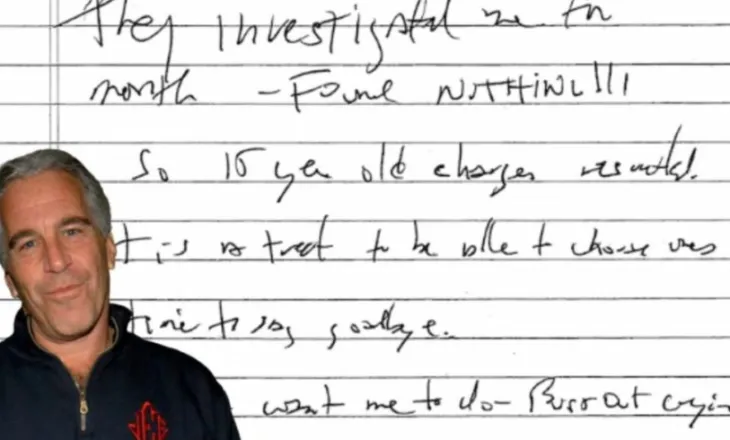 They investigated me for
month - Found NOTHING!!!
So 15 year old charges resulted.
t is a treat to be able to choose ones
time to say goodbye.
want me to do - Burst out cryin